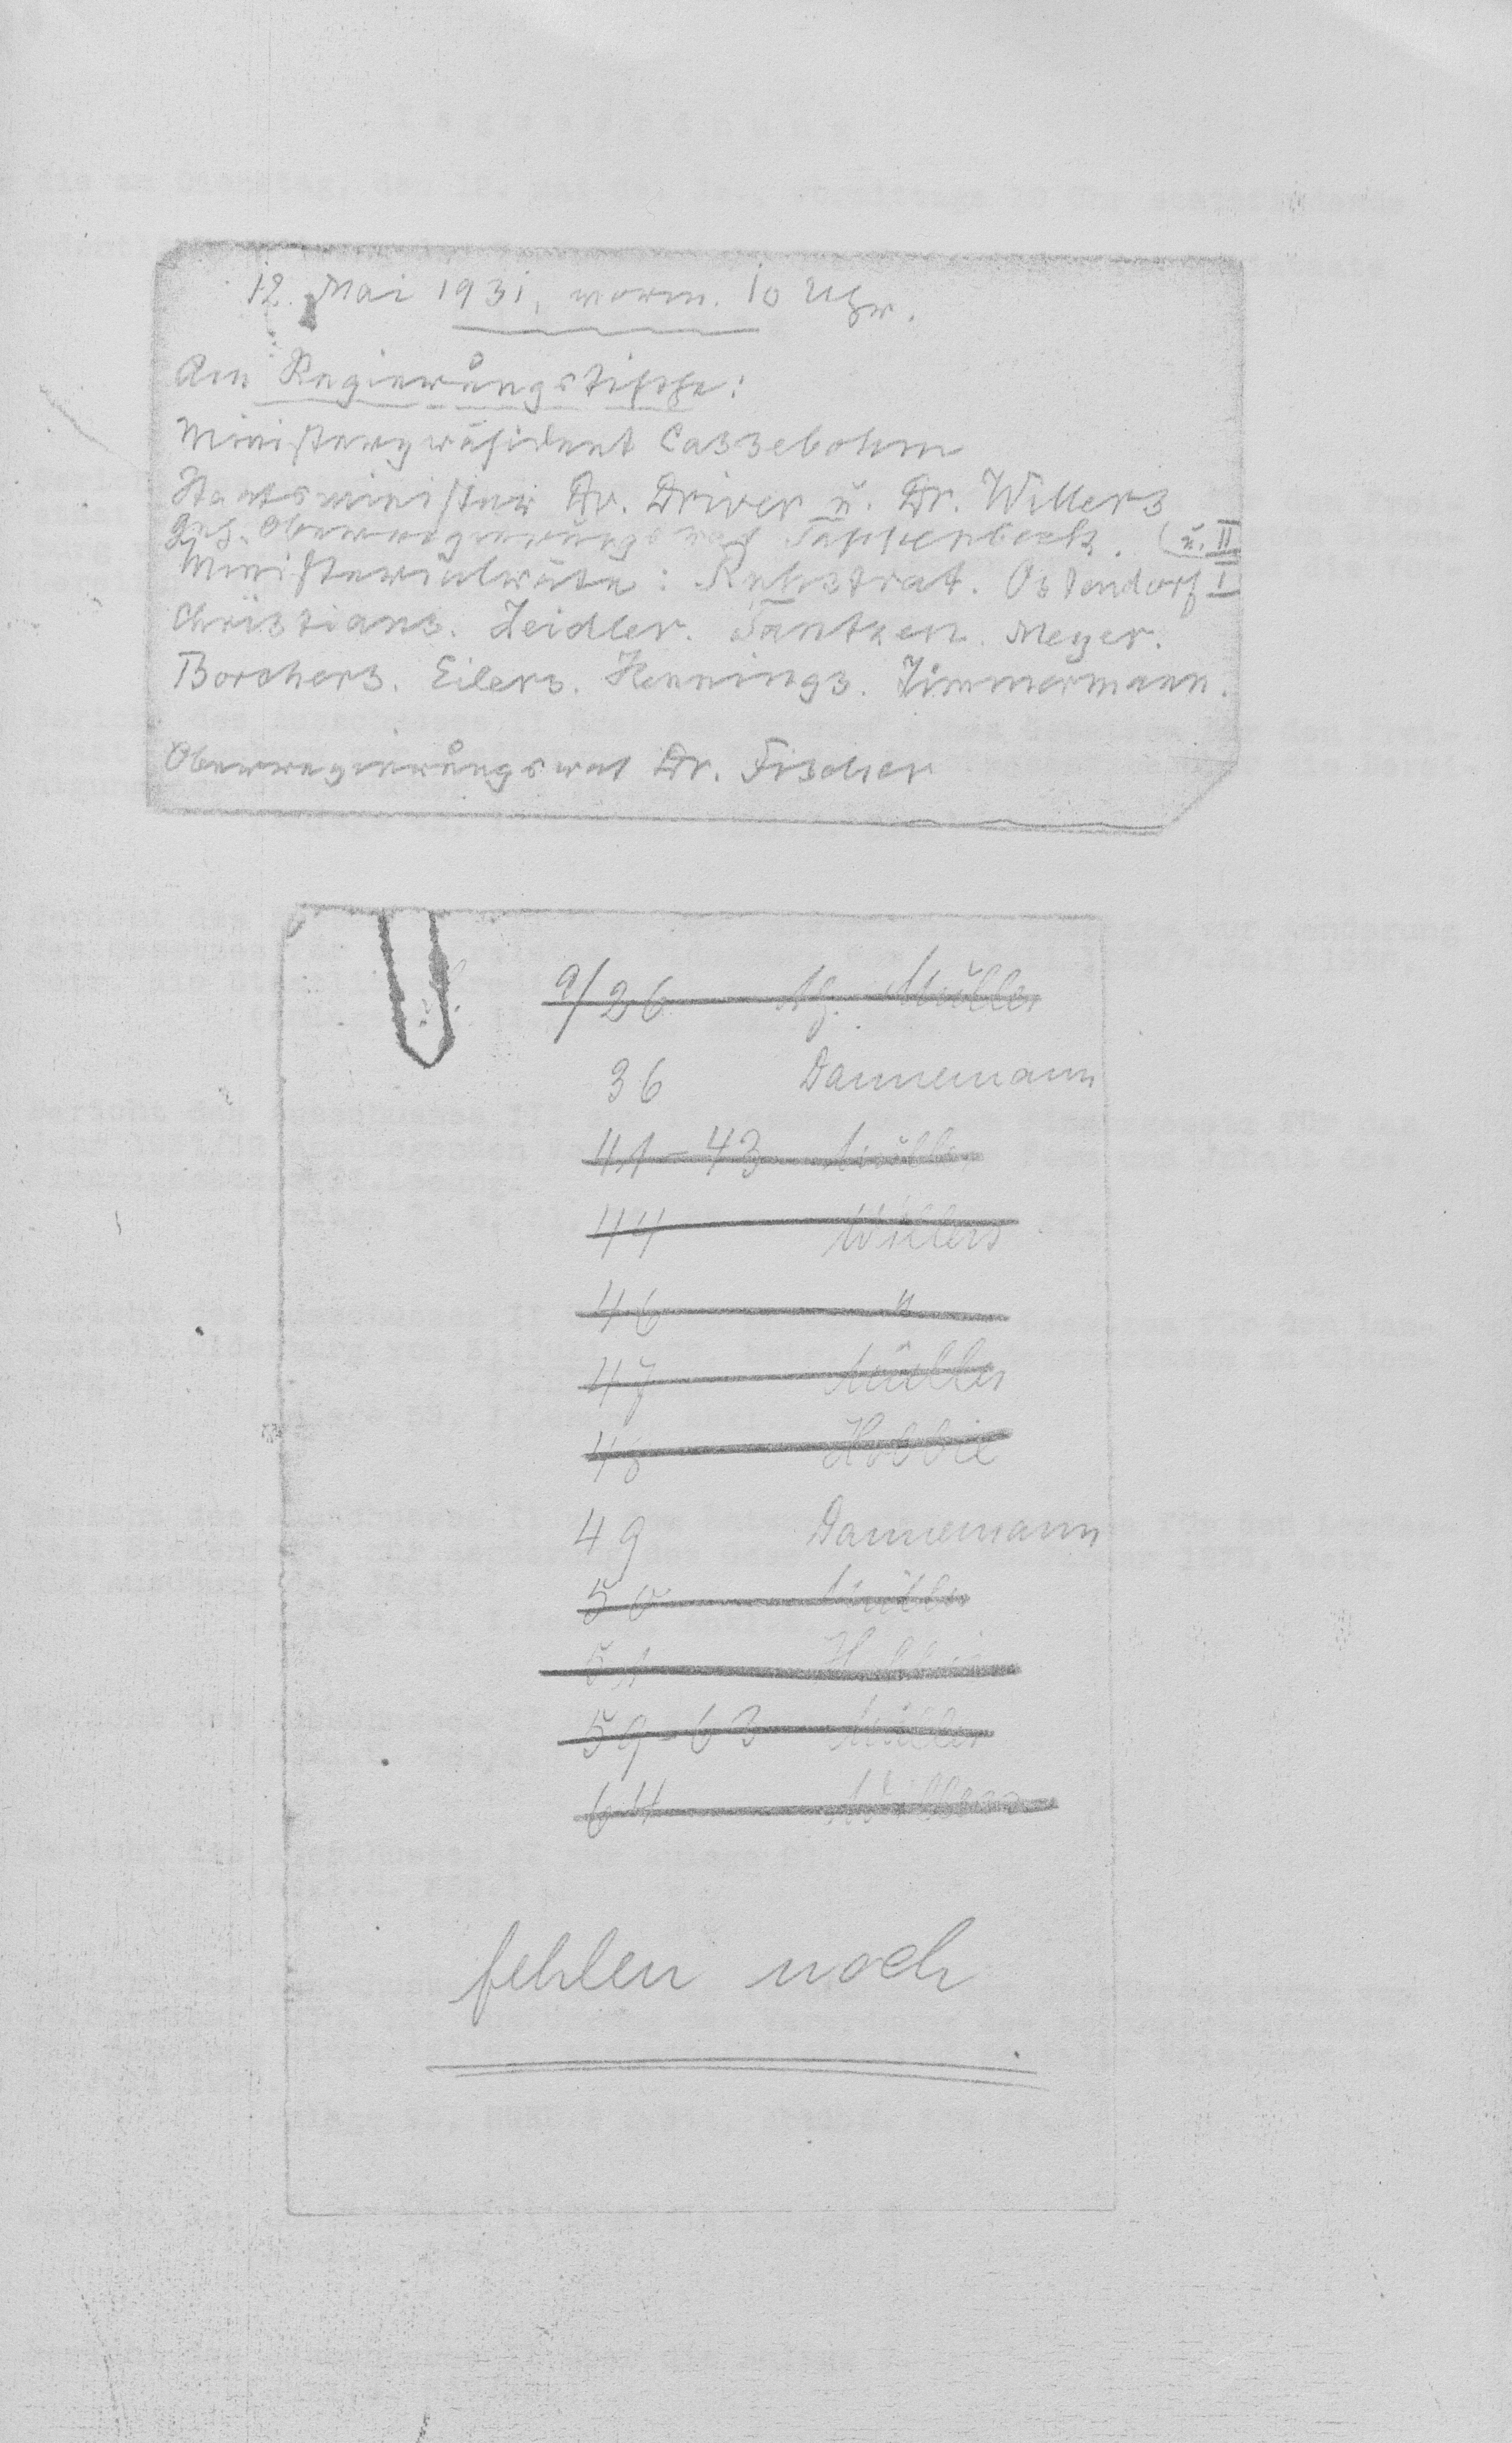 12. Mai 1931, vorm. 10 Uhr.
Am Regierungstische:
Ministerpräsident Cassebohm
Staatsminister Dr. Driver u. Dr. Willers
Geh. Oberregierungsrat Tappenbeck. (u. II
Ministerialräte: Ruhstrat. Ostendorf I
Christians. Zeidler. Tantzen. Meyer.
Borchers. Eilers. Hennings. Zimmermann.
Oberregierungsrat Dr. Fischer
9/26 Ag. Müller
36 Dannemann
41-43 Müller
44 Willers
46 "
47 Müller
48 Hobbie
49 Dannemann
50 Müller
51 Hobbie
59-63 Müller
64 Willers
fehlen noch